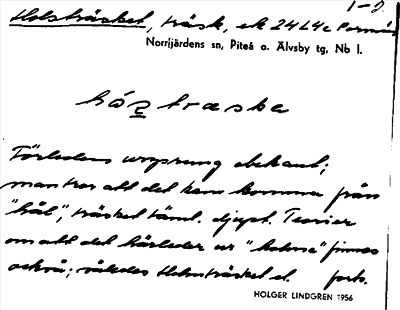 1-2.
Holsträsket, träsk, ek 24 L4c Pormän
Norrfjärdens sn, Piteå o. Älvsby tg, Nb l.
hó̱ztraska
Förledens ursprung obekant;
man tror att det kan komma från
"hål", träsket täml. djupt. Teorier
om att det härleder ur "holme" finnes
också; således Holmträsket el. forts.
HOLGER LINDGREN 1956